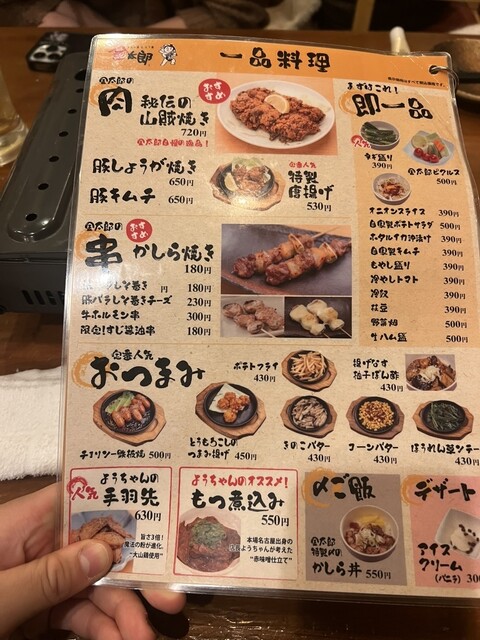 一品料理
太郎の
肉
おすすめ
秘伝の
山賊焼き
720円
豚しょうが焼き
650円
豚キムチ 650円
定番人気
特製
唐揚げ
530円
まずはこれ!
即一品
人気
390円
太郎ピクルス
500円
オニオンスライス 390円
自家製ポテトサラダ 500円
ホタルイカ沖漬け 390円
自家製キムチ 390円
もやし盛り 390円
冷やしトマト 390円
冷奴 390円
枝豆 390円
野菜畑 500円
生ハム盛 500円
太郎の
串
おすすめ
かしら焼き
180円
円
豚バラしそ巻きチーズ 230円
牛ホルモン串 300円
限定!すじ醤油串 180円
定番人気
おつまみ
ポテトフライ
430円
揚げなす
柚子ぽん酢
430円
チョリソー鉄板焼 500円
とうもろこしの
つまみ揚げ 450円
きのこバター
430円
コーンバター
430円
ほうれん草ソテー
430円
人気
ようちゃんの
手羽先
630円
旨さ3倍!
魔法の粉が進化
"大山鶏使用"
ようちゃんのオススメ!
もつ煮込み
550円
本場名古屋出身の
店長ようちゃんが考えた
"赤味噌仕立て"
〆ご飯
太郎
特製〆の
かしら丼 550円
デザート
アイス
クリーム
(バニラ) 300円